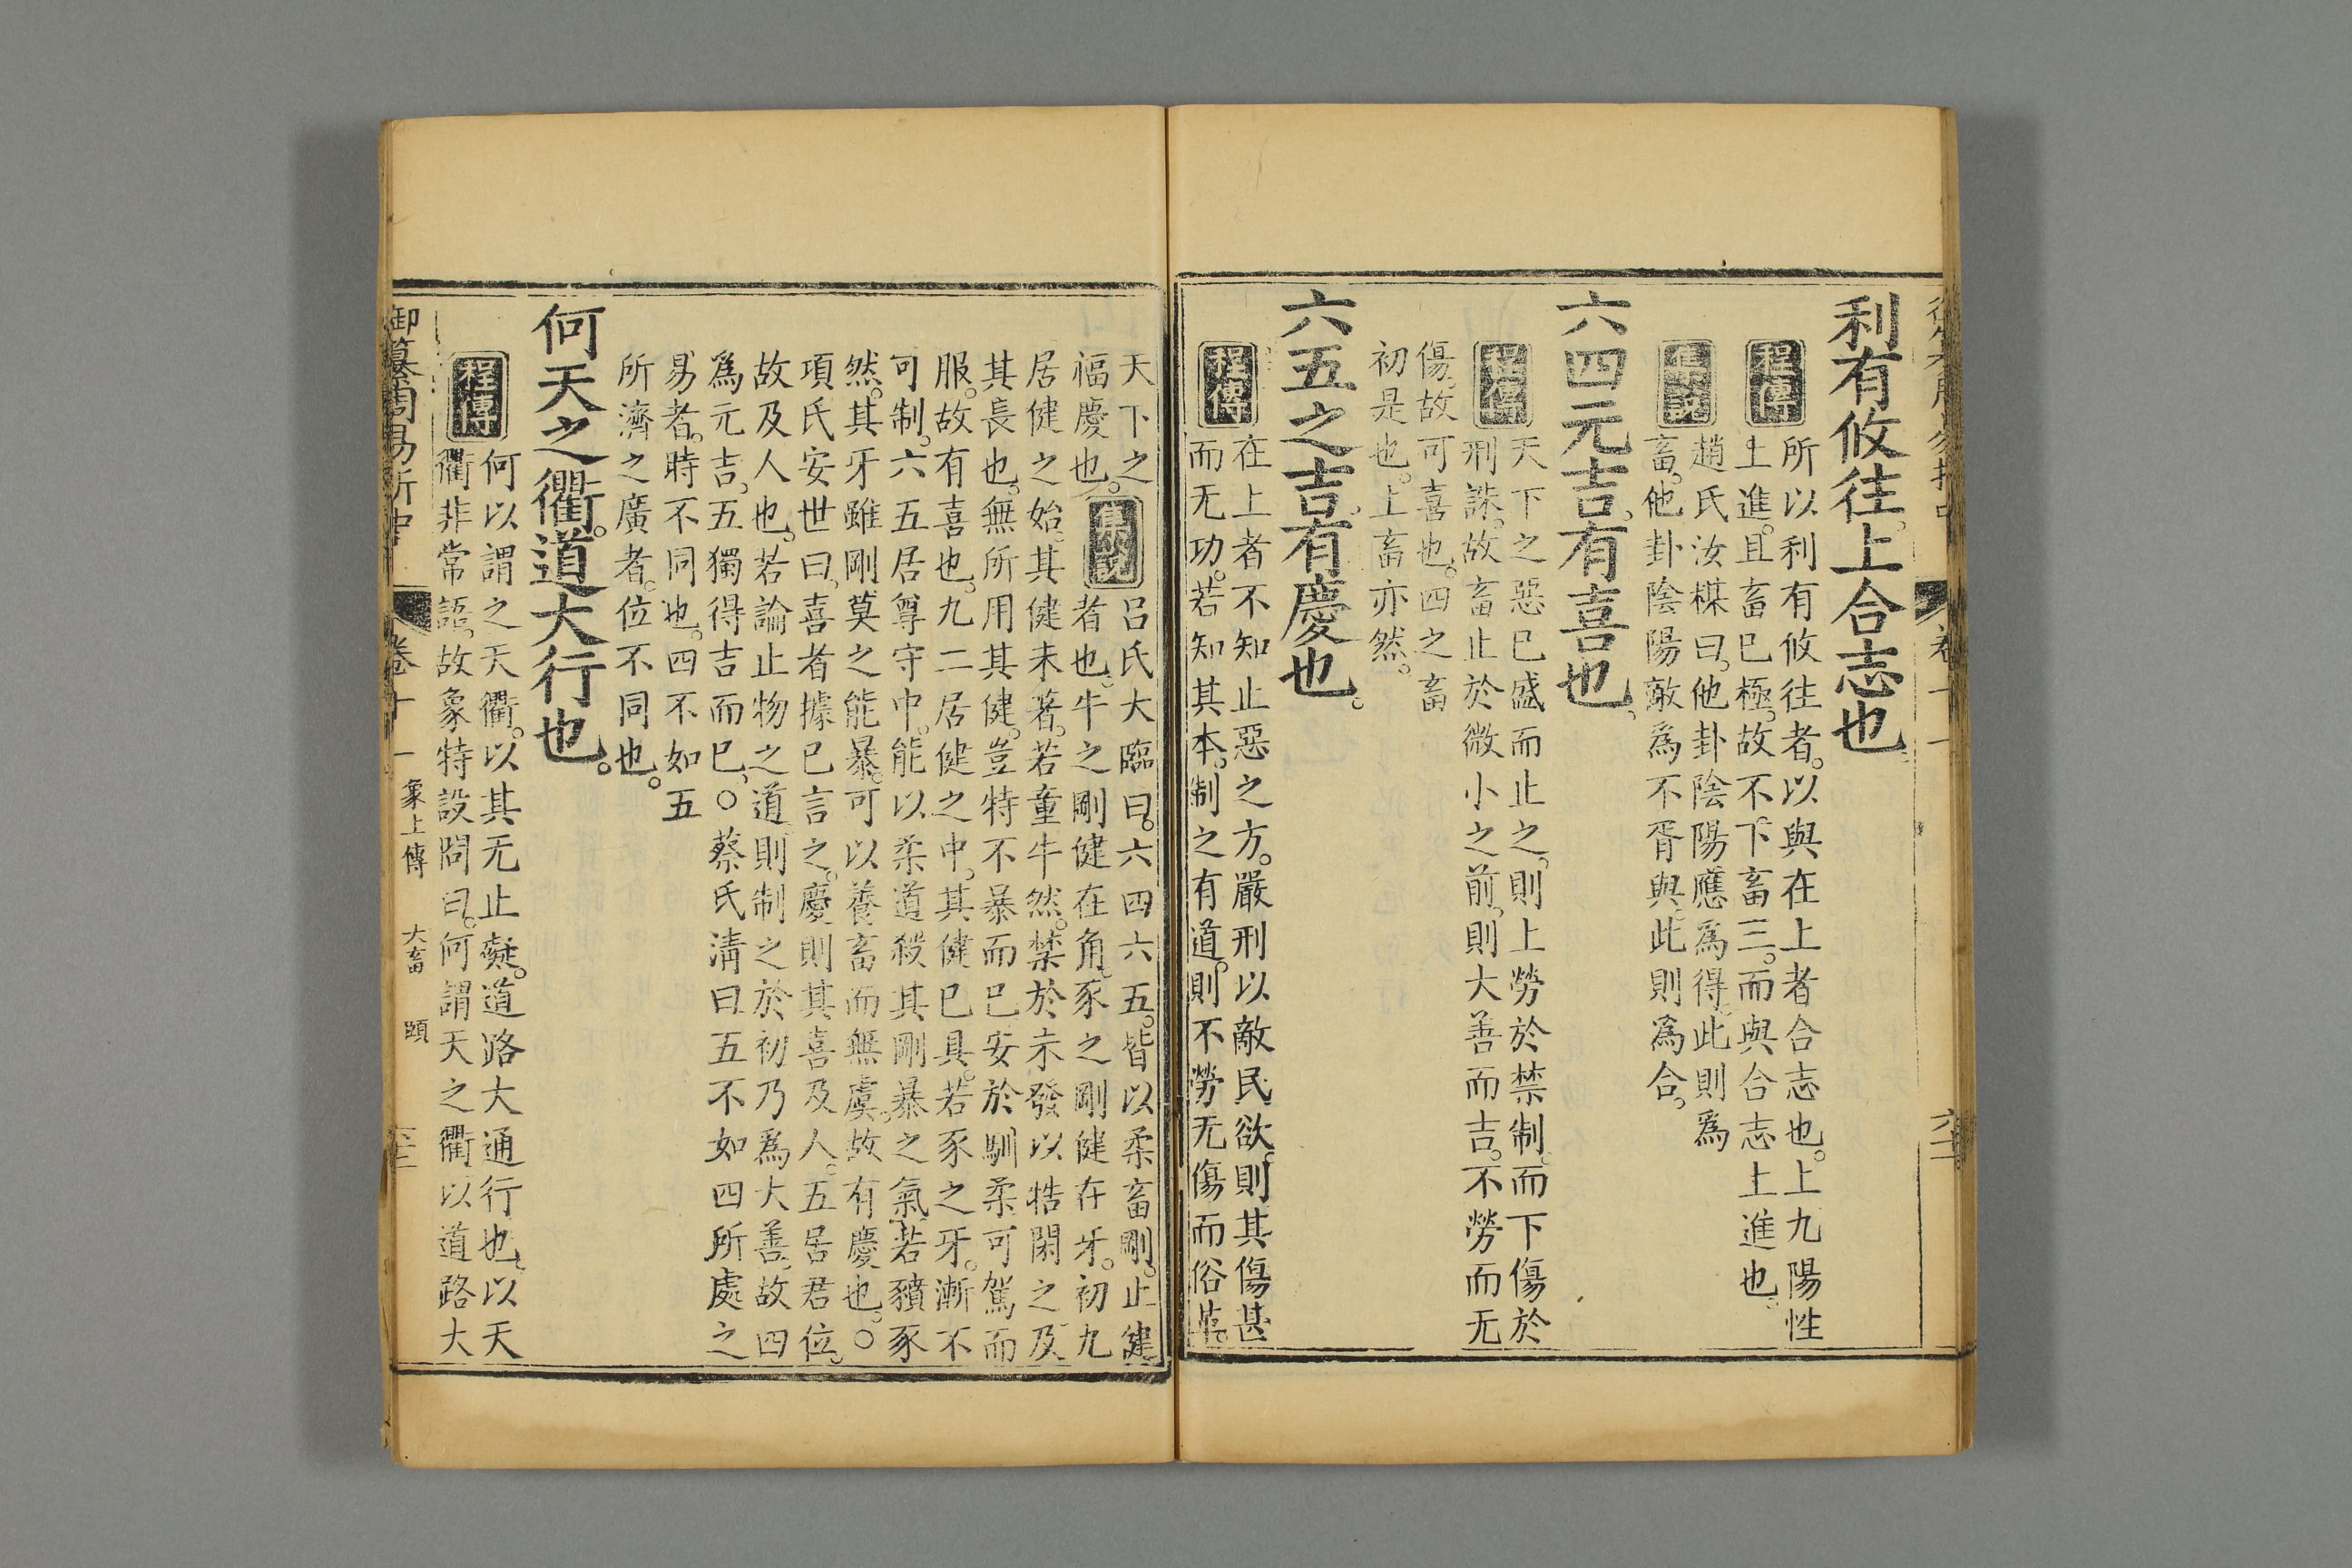 利有攸往。上合志也。
程傳
所以利有攸往者。以與在上者合志也。上九陽性
上進。且畜已極。故不下畜三。而與合志上進也。
集說
趙氏汝楳曰。他卦陰陽應爲得。此則爲
畜。他卦陰陽敵爲不胥與。此則爲合。
六四元吉。有喜也。
程傳
天下之惡已盛而止之。則上勞於禁制。而下傷於
刑誅。故畜止於微小之前。則大善而吉。不勞而无
傷。故可喜也。四之畜
初是也。上畜亦然。
六五之吉。有慶也。
程傳
在上者不知止惡之方。嚴刑以敵民欲。則其傷甚
而无功。若知其本。制之有道。則不勞无傷而俗革。
天下之
福慶也。
集說
呂氏大臨曰。六四六五。皆以柔畜剛。止健
者也。牛之剛健在角。豕之剛健在牙。初九
居健之始。其健未著。若童牛然。禁於未發以牿閑之及
其長也。無所用其健。豈特不暴而已。安於馴柔可駕而
服。故有喜也。九二居健之中。其健已具。若豕之牙。漸不
可制。六五居尊守中。能以柔道殺其剛暴之氣。若豶豕
然。其牙雖剛。莫之能暴。可以養畜而無虞。故有慶也。○
項氏安世曰。喜者據已言之。慶則其喜及人。五居君位。
故及人也。若論止物之道。則制之於初乃爲大善。故四
爲元吉。五獨得吉而已。○蔡氏淸曰。五不如四所處之
易者。時不同也。四不如五
所濟之廣者。位不同也。
何天之衢。道大行也。
程傳
何以謂之天衢。以其无止礙。道路大通行也。以天
衢非常語。故象特設問曰。何謂天之衢。以道路大
御纂周易折中
卷十一
象上傳
大畜
頤